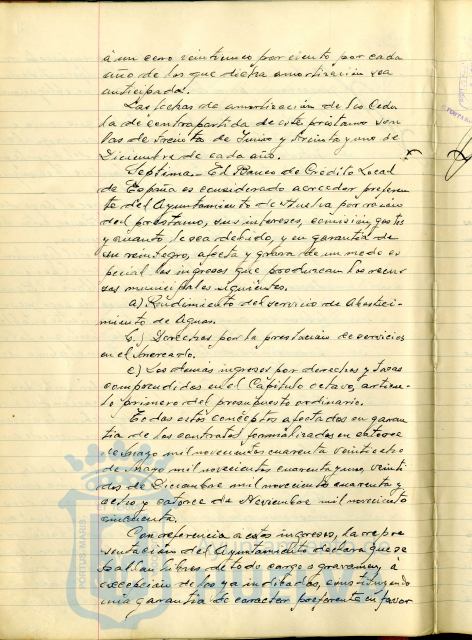 á un cero veintiuno por ciento por cada
año de los que dicha amortización sea
anticipada.
Las fechas de amortización de las Cédu
la de contrapartida de este préstamo son
las de treinta de Junio y treinta y uno de
Diciembre de cada año.
Septima.- El Banco de Crédito Local
de España es considerado acreedor preferen
te del Ayuntamiento de Huelva por razón
del prestamo, sus intereses, comisión, gastos
y cuanto le sea debido, y en garantia de
su reintegro, afecta y grava de un modo es
pecial los ingresos que produzcan los recur
sos municipales siguientes.
a) Rendimiento del servicio de Abasteci-
miento de Aguas.
b) Derechos por la prestación de servicios
en el Mercado.
c) Los demás ingresos por derechos y tasas
comprendidos en el Capitulo octavo, articu-
lo primero del presupuesto ordinario.
Todas estos conceptos afectados en garan
tia de los contratos formalizados en catorce
de Mayo mil novecientos cuarenta veintiocho
de Mayo mil novecientos cuarenta y uno, veinti
dos de Diciembre mil novecientos cuarenta y
ocho y catorce de Noviembre mil novecientos
cincuenta.
Con referencia a estos ingresos, la repre
sentación del Ayuntamiento declara que se
hallan libres de todo cargo o gravamen, á
excepción de los ya indicados, constituyendo
una garantia de caracter preferente en favor
PORTUS MARIS